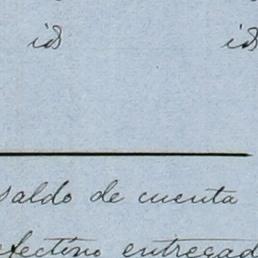 id id
saldo de cuenta
efectivo entregad